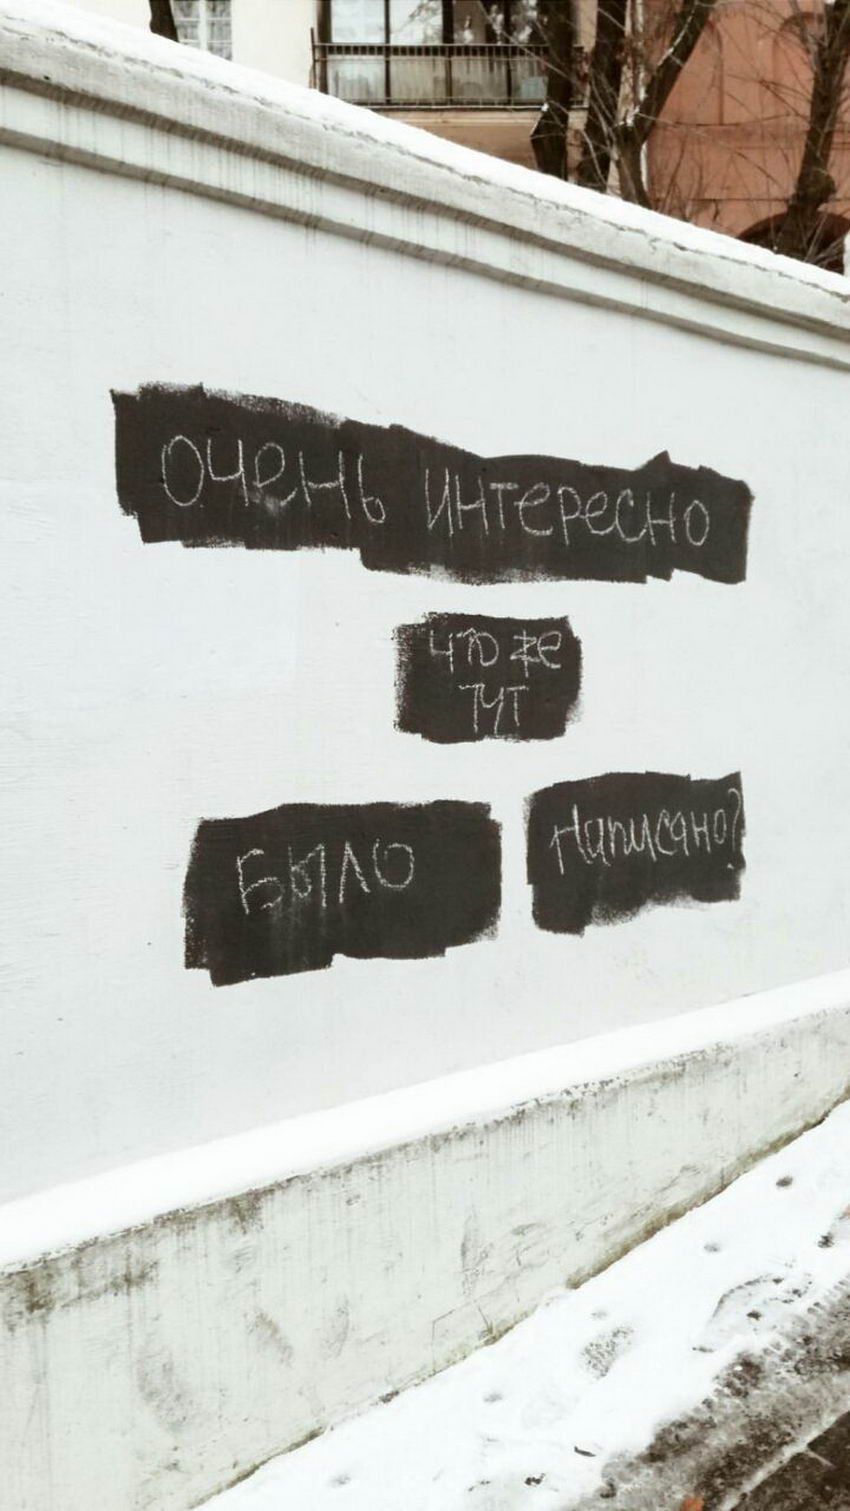 очень интересно
что же
тут
было написано?